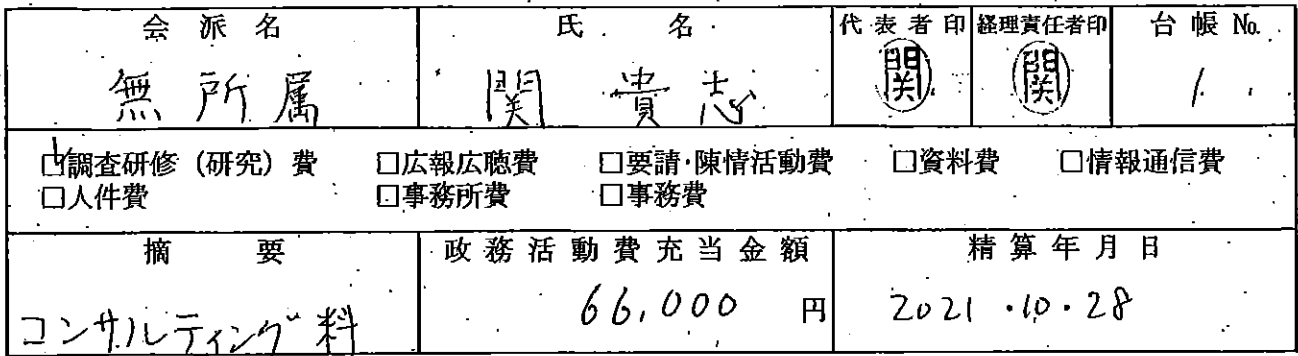 会派名 氏名 代表者印 経理責任者印 台帳No.
無所属 関貴志 関 関 1
☑調査研修(研究)費 □広報広聴費 □要請・陳情活動費 □資料費 □情報通信費
□人件費 □事務所費 □事務費
摘要 政務活動費充当金額 精算年月日
コンサルティング料 66,000 円 2021・10・28